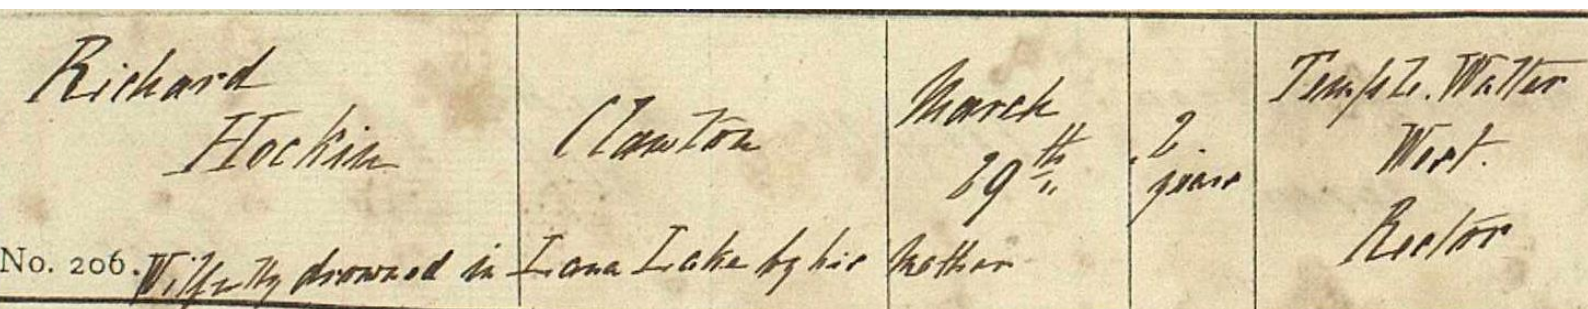 Richard
Hockin
Clawton
March
29th
2
years
Temple. Walter
West.
Rector
No. 206. Wilfully drowned in Lana Lake by his Mother